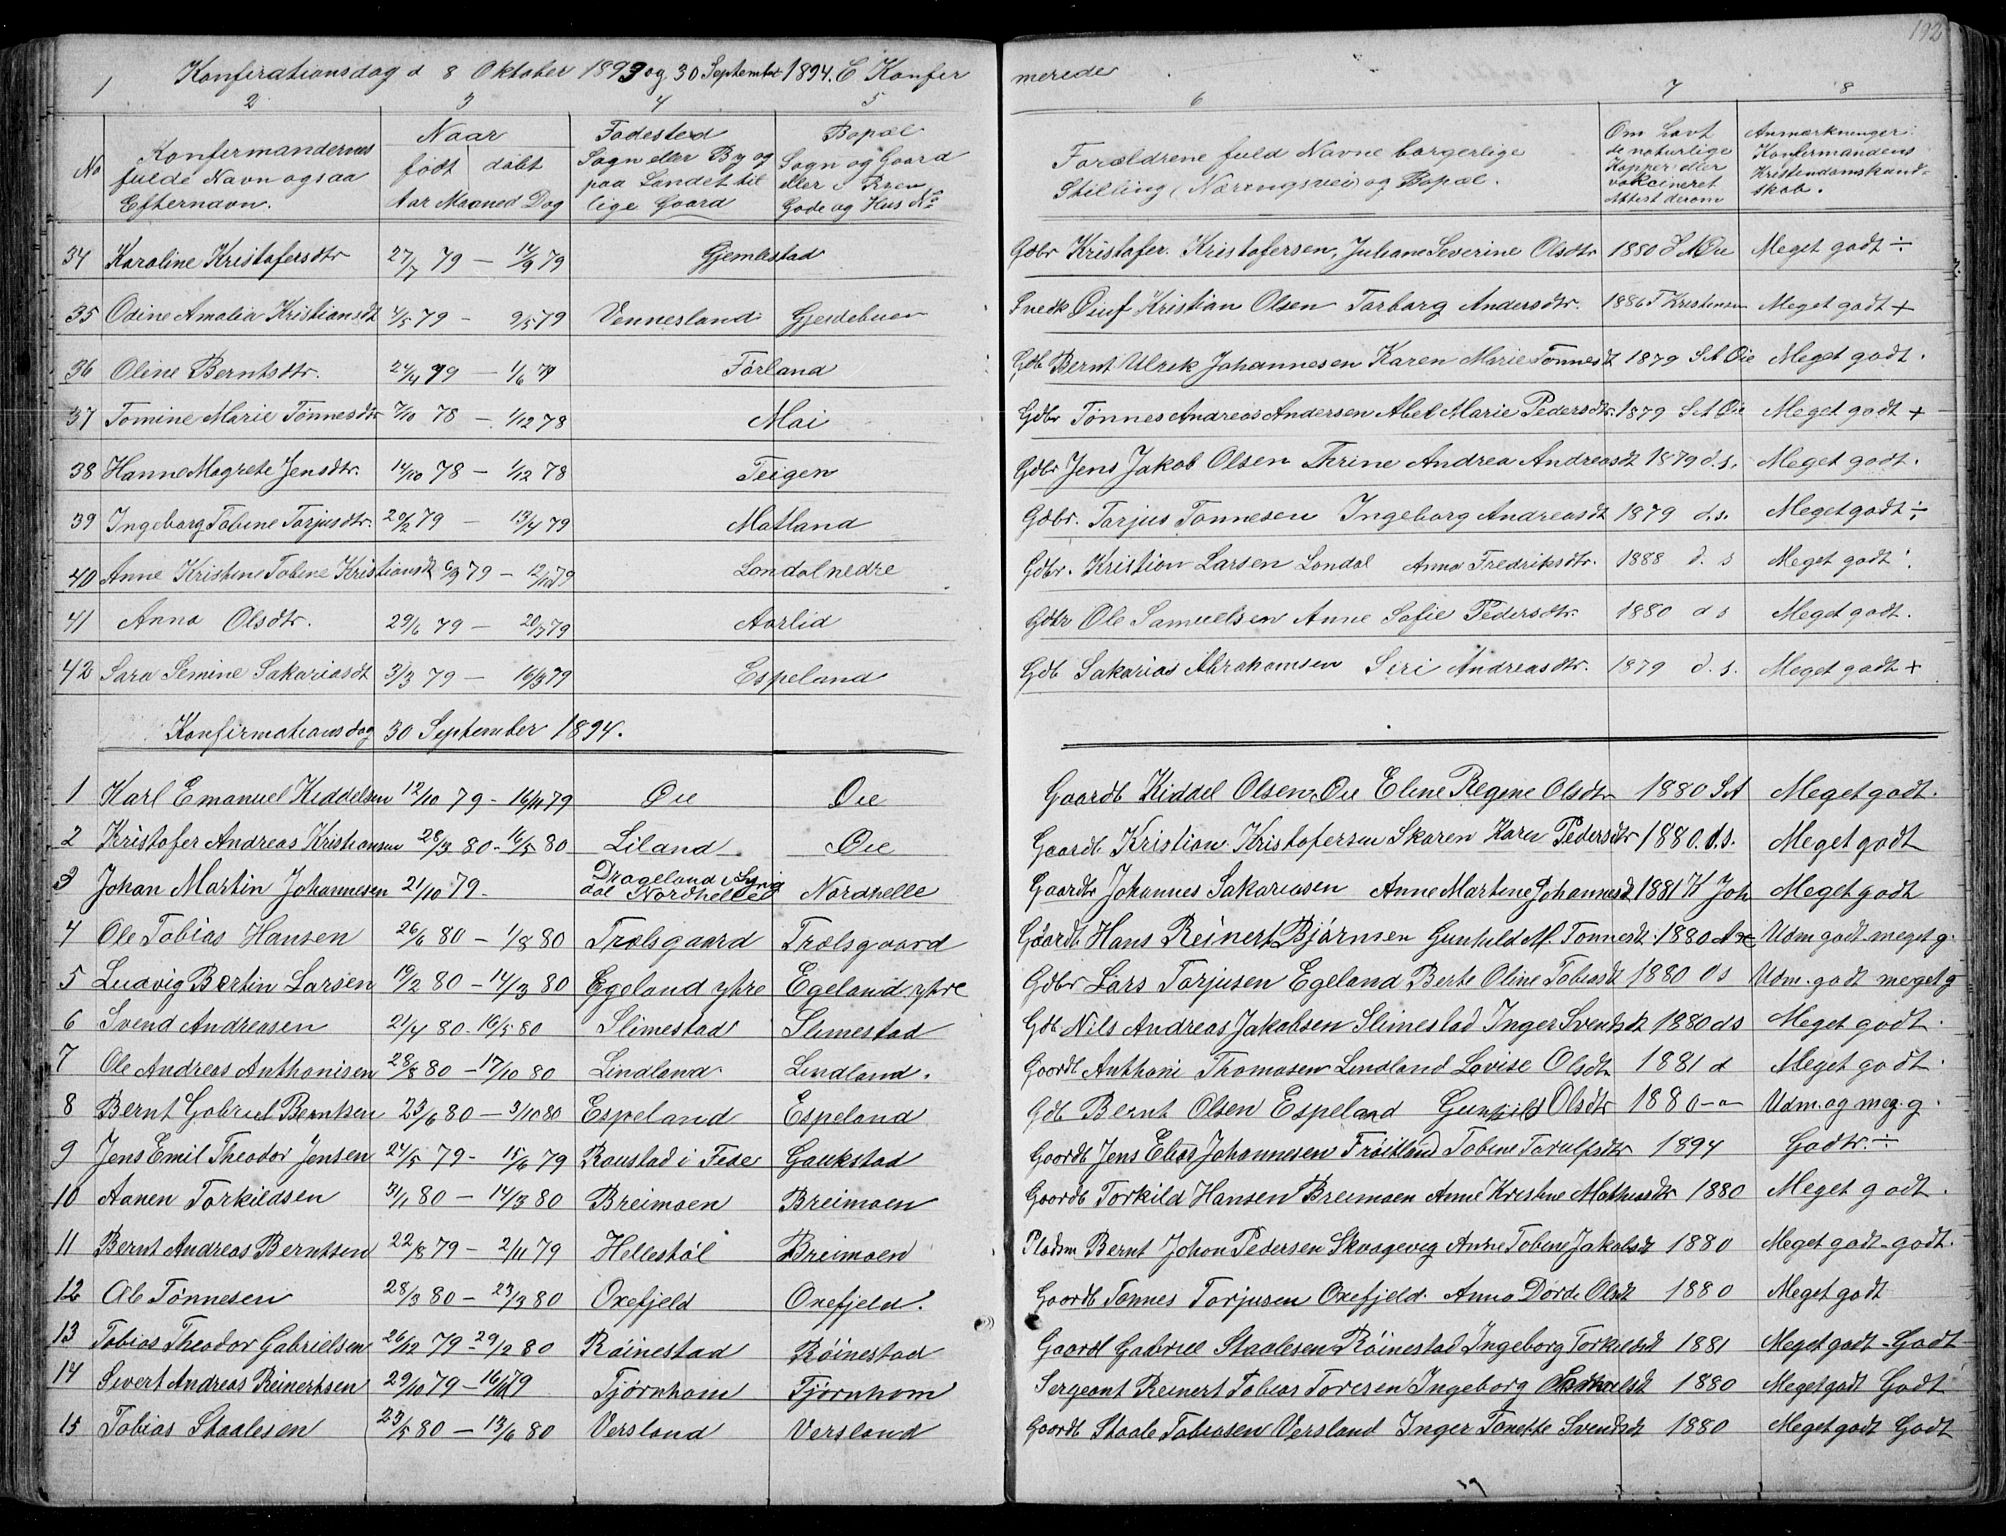 192
Konfirationsdag d 8 Oktober 1893 og 30 September 1894. C Konfer merede
1 2 3 4 5 6 7 8
No
Konfermandernes fulde Navn ogsaa Efternavn.
Naar født døbt Aar Maaned Dag
Fødested Sogn eller By og paa Landet til lige Gaard
Bopæl Sogn og Gaard eller i Byen Gade og Hus No
Forældrene fuld Navne borgerlige Stilling (Næringsvei) og Bopæl.
Om havt de naturlige Kopper eller vakcineret Attest derom
Anmærkninger Konfermandens Kristendomskundskab.
34 Karoline Kristofersdtr 27/7 79 — 14/9 79 Gjemlestad Gdbr Kristofer Kristofersen, Juliane Severine Olsdtr 1880 S A Øie Meget godt ÷
35 Odine Amalia Kristiansdt 4/5 79 — 9/5 79 Vennesland Gjesdebuen Snedk Oluf Kristian Olsen Tarborg Andersdtr. 1886 T Kristensen Meget godt +
36 Oline Berntsdtr. 24/4 79 — 1/6 79 Førland Gdb Bernt Ulrik Johannesen Karen Marie Tønnesdt 1879 S A Øie Meget godt.
37 Tomine Marie Tønnesdtr 7/10 78 — 1/12 78 Moi Gdbr Tønnes Andreas Andersen Abel Marie Pedersdtr. 1879 S A Øie Meget godt +
38 Hanne Magrete Jensdtr. 14/10 78 — 1/12 78 Teigen Gdbr Jens Jakob Olsen Thrine Andrea Andreasdt 1879 d.s. Meget godt.
39 Ingeborg Tobine Tarjusdtr. 20/2 79 — 13/4 79 Matland Gdbr. Tarjus Tønnesen Ingeborg Andreasdt 1879 d.s. Meget godt ÷
40 Anne Kristine Tobine Kristiansdt 6/9 79 — 12/10 79 Londal nedre Gdbr. Kristian Larsen Londal Anna Fredriksdtr. 1888 d. s Meget godt.
41 Anna Olsdtr. 29/6 79 — 20/7 79 Aarlid Gdbr Ole Samuelsen Anne Sofie Pedersdtr. 1880 d s Meget godt.
42 Sara Semine Sakariasdt 3/3 79 — 16/3 79 Espeland Gdb Sakarias Abrahamsen Siri Andreasdtr. 1879 d. s. Meget godt +
Konfirmationsdag 30 September 1894.
1 Karl Emanuel Kiddelsen 12/10 79 - 16/11 79 Øie Øie Gaardb Kiddel Olsen, Øie Eline Regine Olsdtr 1880 S A Meget godt.
2 Kristofer Andreas Kristiansen 28/3 80 - 16/5 80 Liland Øie Gaardb Kristian Kristofersen Skaren Karen Pedersdtr 1880. d.s. Meget godt
3 Johan Martin Johannesen 21/10 79. Drageland i Lyngdal Nordhelle Nordhelle Gaardbr Johannes Sakariasen Anne Martine Johannesdt 1881 K Joh Meget godt
4 Ole Tobias Hansen 26/6 80 — 1/8 80 Trælsgaard Trælsgaard Gaardb Hans Reinert Bjørnsen Gunhild M. Tønnesdt. 1880 Udm godt meget g.
5 Ludvig Bertin Larsen 19/2 80 — 14/3 80 Egeland ytre Egeland ytre Gdbr Lars Torjusen Egeland Berte Oline Tobiasdt 1880 ds Udm. godt meget g
6 Svend Andreasen 21/4 80 - 16/5 80 Slimestad Slimestad Gdb Nils Andreas Jakobsen Slimestad Inger Svendsdt 1880 ds Meget godt.
7 Ole Andreas Anthonisen 28/8 80 — 17/10 80 Lindland Lindland. Gaardb Anthoni Thomasen Lindland Lovise Olsdt 1881 d Meget godt.
8 Bernt Gabriel Berntsen 23/6 80 — 3/10 80 Espeland Espeland Gdb Bernt Olsen Espeland Gunhild Olsdtr 1880 — " — Udm. og meg. g.
9 Jens Emil Theodor Jensen 24/5 79 - 15/6 79 Roustad i Fede Gaukstad Gaardb Jens Elias Johannesen Frøitland Tobine Torulfsdtr 1894 Godtr. ÷
10 Aanen Torkildsen 31/1 80 — 14/3 80 Breimoen Breimoen Gaardb Torkild Hansen Breimoen Anne Kristine Mathiasdtr 1880 Meget godt.
11 Bernt Andreas Berntsen 22/8 79 — 2/11 79 Hellestøl Breimoen Pladsm Bernt Johan Pedersen Skaagevig Anne Tobine Jakobsdt 1880 Meget godt - godt.
12 Ole Tønnesen 28/3 80 — 23/3 80 Oxefjeld Oxefjeld. Gaardb Tønnes Torjusen Oxefjeld. Anna Dorde Olsdt 1880 Meget godt
13 Tobias Theodor Gabrielsen 26/12 79 - 29/2 80 Røinestad Røinestad Gaardb Gabriel Staalesen Røinestad Ingeborg Torkildsdt 1881 Meget godt - Godt
14 Sivert Andreas Reinertsen 29/10 79 — 16/11 79 Tjørnhom Tjørnhom Sergeant Reinert Tobias Toresen Ingeborg 1880 Meget godt Godt
15 Tobias Staalesen 23/5 80 — 13/6 80 Versland Versland Gaardb Staale Tobiasen Versland Inger Tonette Svendsdt 1880 Meget godt Godt